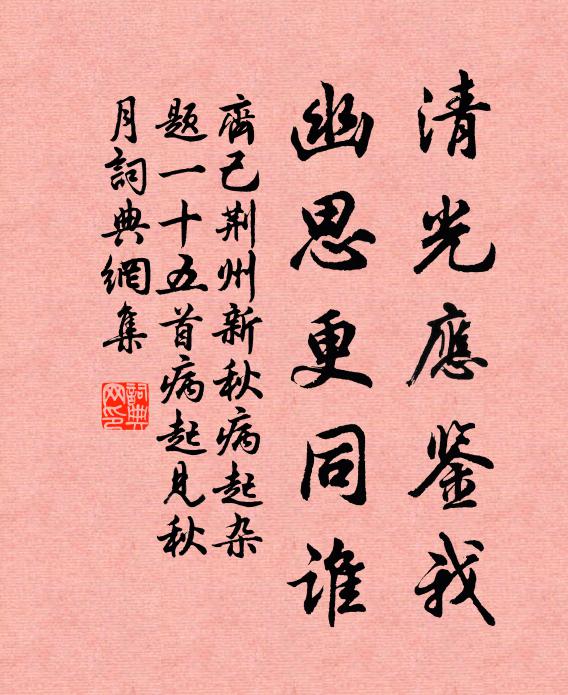 清光應鉴我
幽思更同谁
齊己荆州新秋病起杂
题一十五首病起见秋
月詞典網集
詞典
网印